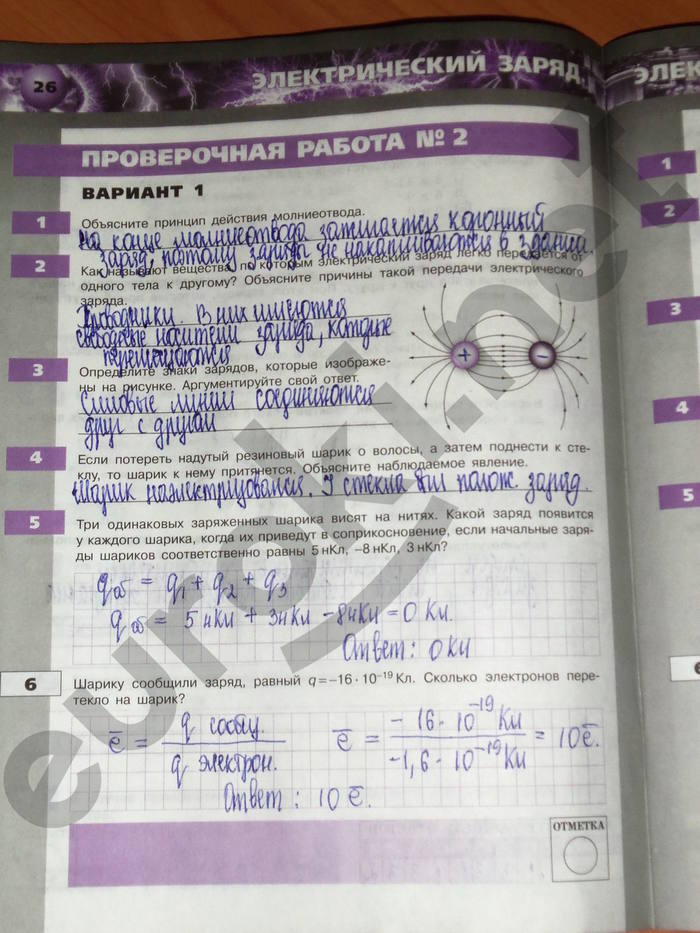 26
ЭЛЕКТРИЧЕСКИЙ ЗАРЯД.
ЭЛЕК
ПРОВЕРОЧНАЯ РАБОТА № 2
ВАРИАНТ 1
1
Объясните принцип действия молниеотвода.
На конце молниеотвода зажигается коронный
заряд, поэтому заряды не накапливаются в здании.
2
Как называют вещества, по которым электрический заряд легко передается от
одного тела к другому? Объясните причины такой передачи электрического
заряда.
Проводники. В них имеются
свободные носители заряда, которые
перемещаются
+
-
3
Определите знаки зарядов, которые изображе-
ны на рисунке. Аргументируйте свой ответ.
Силовые линии соединяются
друг с другом
4
Если потереть надутый резиновый шарик о волосы, а затем поднести к сте-
клу, то шарик к нему притянется. Объясните наблюдаемое явление.
Шарик наэлектризовался. У стекла был полож. заряд.
5
Три одинаковых заряженных шарика висят на нитях. Какой заряд появится
у каждого шарика, когда их приведут в соприкосновение, если начальные заря-
ды шариков соответственно равны 5 нКл, –8 нКл, 3 нКл?
qоб = q1 + q2 + q3
qоб = 5 нКл + 3нКл - 8нКл = 0 Кл.
Ответ: 0 Кл
6
Шарику сообщили заряд, равный q=–16·10⁻¹⁹ Кл. Сколько электронов пере-
текло на шарик?
ē = q сообщ. / q электрон. ē = - 16 · 10⁻¹⁹ Кл / -1,6 · 10⁻¹⁹ Кл = 10ē.
Ответ : 10 ē.
ОТМЕТКА
1
2
3
4
5
6
euroki.net